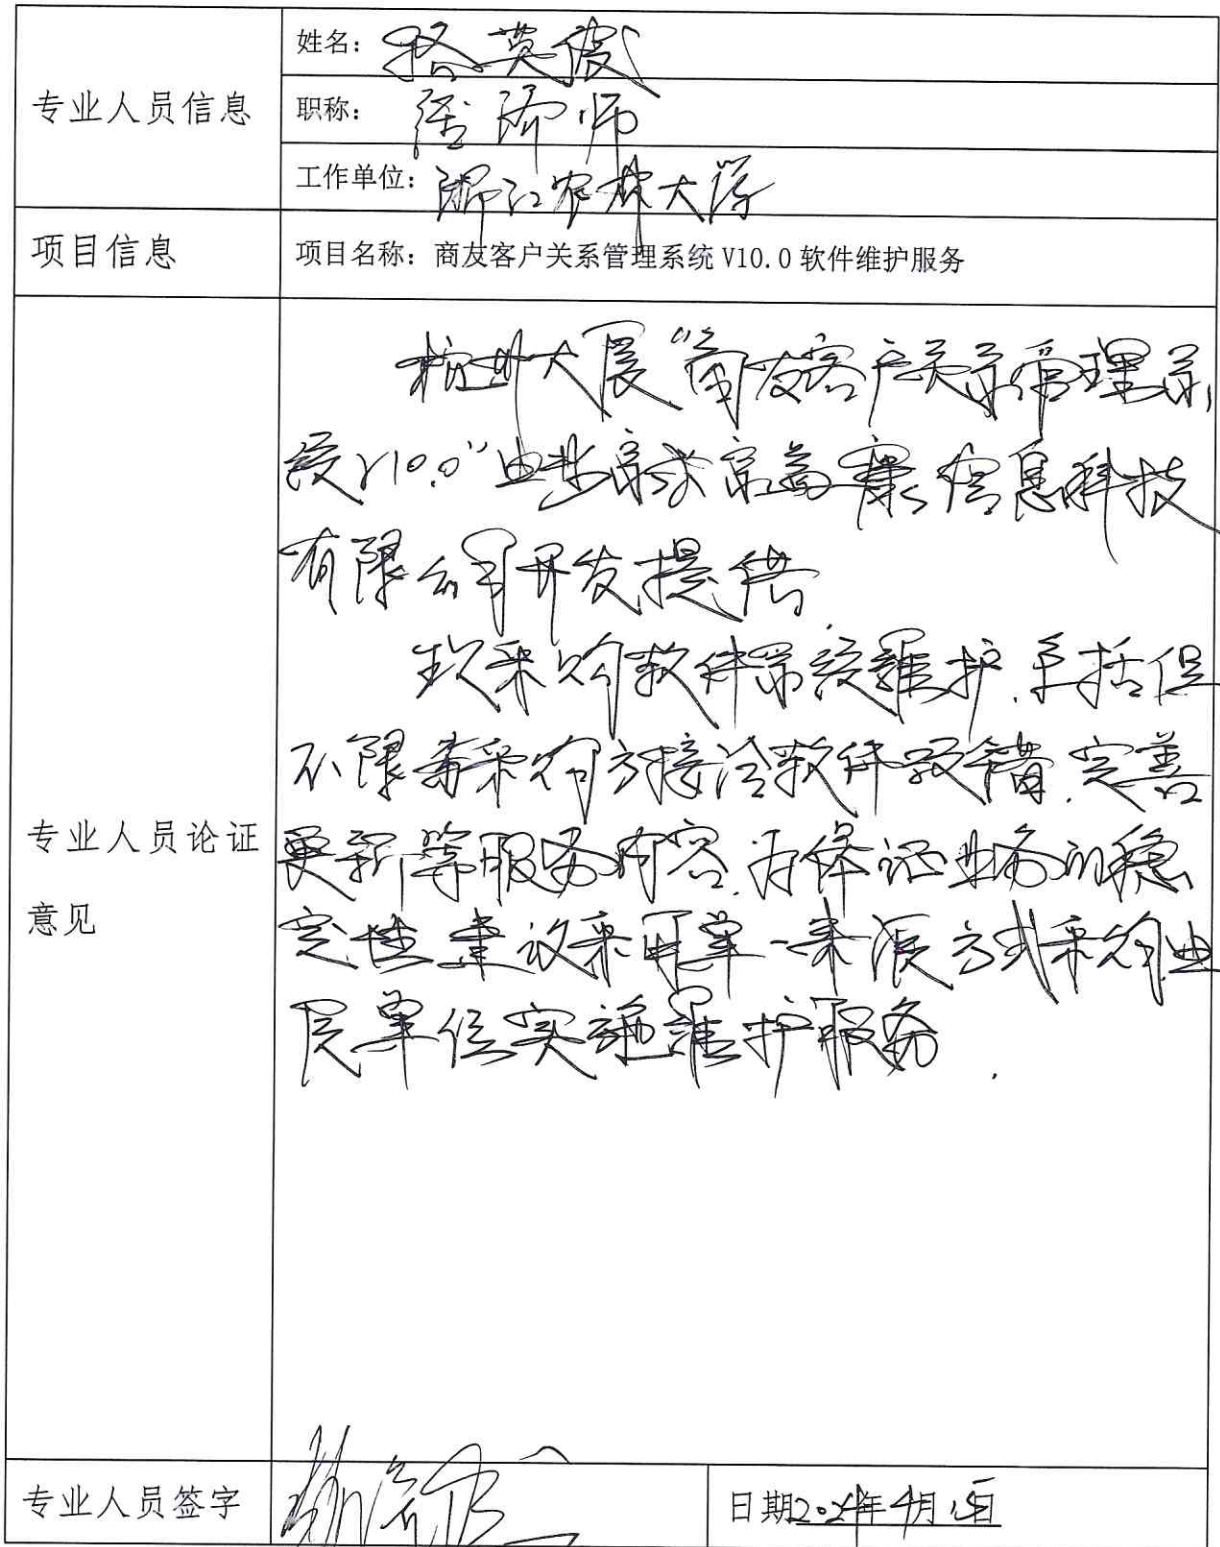 专业人员信息
姓名：
职称：经济师
工作单位：浙江农林大学
项目信息
项目名称：商友客户关系管理系统 V10.0 软件维护服务
专业人员论证
意见
杭州大展“商友客户关系管理系
统V10.0”由 信息科技
有限公司开发提供
采购软件系统维护.包括但
不限 采购方接洽软件 错.完善
更新等服务内容.为保证业务的稳
定性建议采用单一来源方式采购由
原单位实施维护服务.
专业人员签字
日期 年4月 日